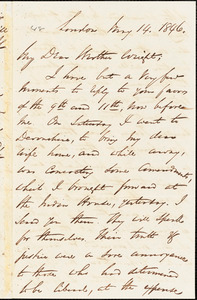 London May 14. 1846.
My Dear Brother Wright,
I have but a very few
moments to reply to your favors
of the 9th and 11th, now before
me On Saturday I went to
Devonshire, to bring my dear
wife home, and while away,
was concocting some Amendments,
which I brought forward at
the India House, yesterday. I
send you them they will speak
for themselves. Their truth &
justice were a sore annoyance
to those who had determined
to be liberal, at the expense